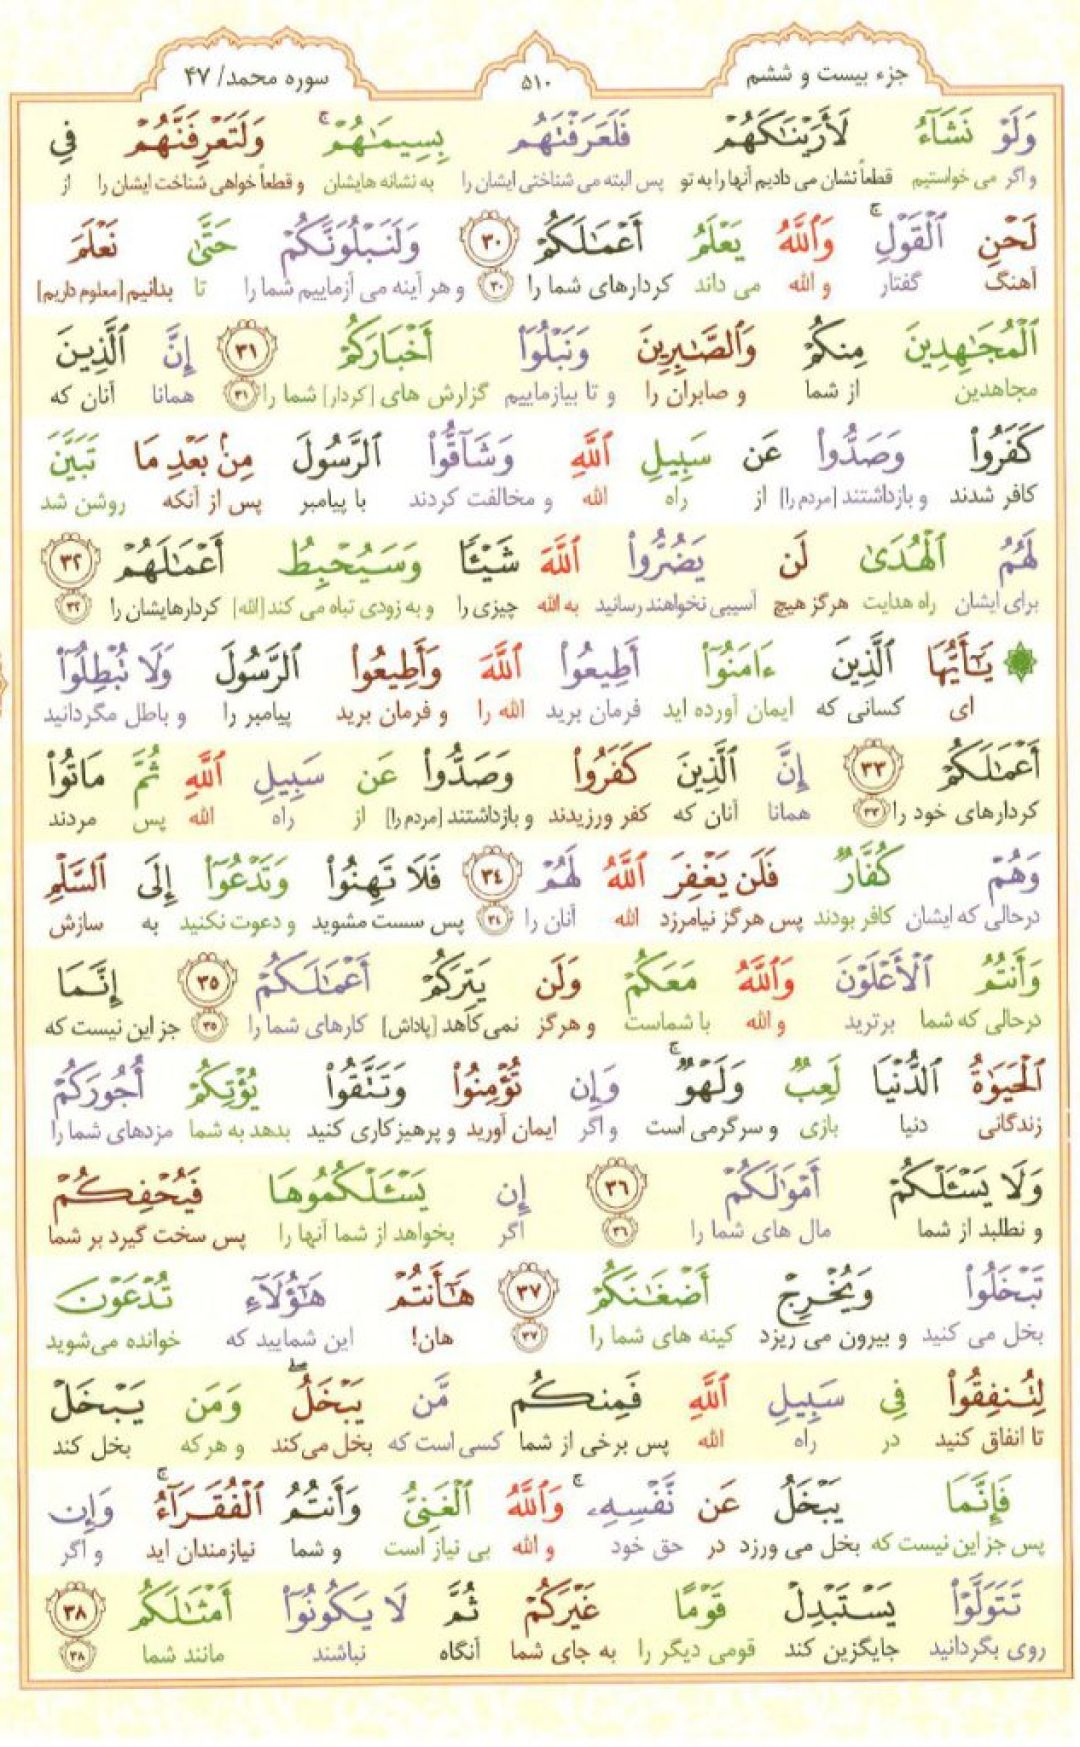 جزء بیست و ششم
۵۱۰
سوره محمد/ ۴۷
وَلَوْ نَشَآءُ لَأَرَيْنَٰكَهُمْ فَلَعَرَفْتَهُم بِسِيمَٰهُمْ ۚ وَلَتَعْرِفَنَّهُمْ فِي
و اگر می خواستیم قطعاً نشان می دادیم آنها را به تو پس البته می شناختی ایشان را به نشانه هایشان و قطعاً خواهی شناخت ایشان را از
لَحْنِ ٱلْقَوْلِ ۚ وَٱللَّهُ يَعْلَمُ أَعْمَٰلَكُمْ ۳۰ وَلَنَبْلُوَنَّكُمْ حَتَّىٰ نَعْلَمَ
آهنگ گفتار و الله می داند کردارهای شما را ۳۰ و هر آینه می آزماییم شما را تا بدانیم [معلوم داریم]
ٱلْمُجَٰهِدِينَ مِنكُمْ وَٱلصَّٰبِرِينَ وَنَبْلُوَا۟ أَخْبَارَكُمْ ۳۱ إِنَّ ٱلَّذِينَ
مجاهدین از شما و صابران را و تا بیازماییم گزارش های [کردار] شما را ۳۱ همانا آنان که
كَفَرُوا۟ وَصَدُّوا۟ عَن سَبِيلِ ٱللَّهِ وَشَآقُّوا۟ ٱلرَّسُولَ مِنۢ بَعْدِ مَا تَبَيَّنَ
کافر شدند و بازداشتند [مردم را] از راه الله و مخالفت کردند با پیامبر پس از آنکه روشن شد
لَهُمُ ٱلْهُدَىٰ لَن يَضُرُّوا۟ ٱللَّهَ شَيْـًٔا وَسَيُحْبِطُ أَعْمَٰلَهُمْ ۳۲
برای ایشان راه هدایت هرگز هیچ آسیبی نخواهند رسانید به الله چیزی را و به زودی تباه می کند [الله] کردارهایشان را ۳۲
يَٰٓأَيُّهَا ٱلَّذِينَ ءَامَنُوٓا۟ أَطِيعُوا۟ ٱللَّهَ وَأَطِيعُوا۟ ٱلرَّسُولَ وَلَا تُبْطِلُوٓا۟
ای کسانی که ایمان آورده اید فرمان برید الله را و فرمان برید پیامبر را و باطل مگردانید
أَعْمَٰلَكُمْ ۳۳ إِنَّ ٱلَّذِينَ كَفَرُوا۟ وَصَدُّوا۟ عَن سَبِيلِ ٱللَّهِ ثُمَّ مَاتُوا۟
کردارهای خود را ۳۳ همانا آنان که کفر ورزیدند و بازداشتند [مردم را] از راه الله پس مردند
وَهُمْ كُفَّارٌ فَلَن يَغْفِرَ ٱللَّهُ لَهُمْ ۳۴ فَلَا تَهِنُوا۟ وَتَدْعُوٓا۟ إِلَى ٱلسَّلْمِ
درحالی که ایشان کافر بودند پس هرگز نیامرزد الله آنان را ۳۴ پس سست مشوید و دعوت نکنید به سازش
وَأَنتُمُ ٱلْأَعْلَوْنَ وَٱللَّهُ مَعَكُمْ وَلَن يَتِرَكُمْ أَعْمَٰلَكُمْ ۳۵ إِنَّمَا
درحالی که شما برترید و الله با شماست و هرگز نمی کاهد [پاداش] کارهای شما را ۳۵ جز این نیست که
ٱلْحَيَوٰةُ ٱلدُّنْيَا لَعِبٌ وَلَهْوٌ ۚ وَإِن تُؤْمِنُوا۟ وَتَتَّقُوا۟ يُؤْتِكُمْ أُجُورَكُمْ
زندگانی دنیا بازی و سرگرمی است و اگر ایمان آورید و پرهیزکاری کنید بدهد به شما مزدهای شما را
وَلَا يَسْـَٔلْكُمْ أَمْوَٰلَكُمْ ۳۶ إِن يَسْـَٔلْكُمُوهَا فَيُحْفِكُمْ
و نطلبد از شما مال های شما را ۳۶ اگر بخواهد از شما آنها را پس سخت گیرد بر شما
تَبْخَلُوا۟ وَيُخْرِجْ أَضْغَٰنَكُمْ ۳۷ هَٰٓأَنتُمْ هَٰٓؤُلَآءِ تُدْعَوْنَ
بخل می کنید و بیرون می ریزد کینه های شما را ۳۷ هان! این شمایید که خوانده می‌شوید
لِتُنفِقُوا۟ فِي سَبِيلِ ٱللَّهِ فَمِنكُم مَّن يَبْخَلُ ۖ وَمَن يَبْخَلْ
تا انفاق کنید در راه الله پس برخی از شما کسی است که بخل می‌کند و هرکه بخل کند
فَإِنَّمَا يَبْخَلُ عَن نَّفْسِهِۦ ۚ وَٱللَّهُ ٱلْغَنِيُّ وَأَنتُمُ ٱلْفُقَرَآءُ ۚ وَإِن
پس جز این نیست که بخل می ورزد در حق خود و الله بی نیاز است و شما نیازمندان اید و اگر
تَتَوَلَّوْا۟ يَسْتَبْدِلْ قَوْمًا غَيْرَكُمْ ثُمَّ لَا يَكُونُوٓا۟ أَمْثَٰلَكُم ۳۸
روی بگردانید جایگزین کند قومی دیگر را به جای شما آنگاه نباشند مانند شما ۳۸